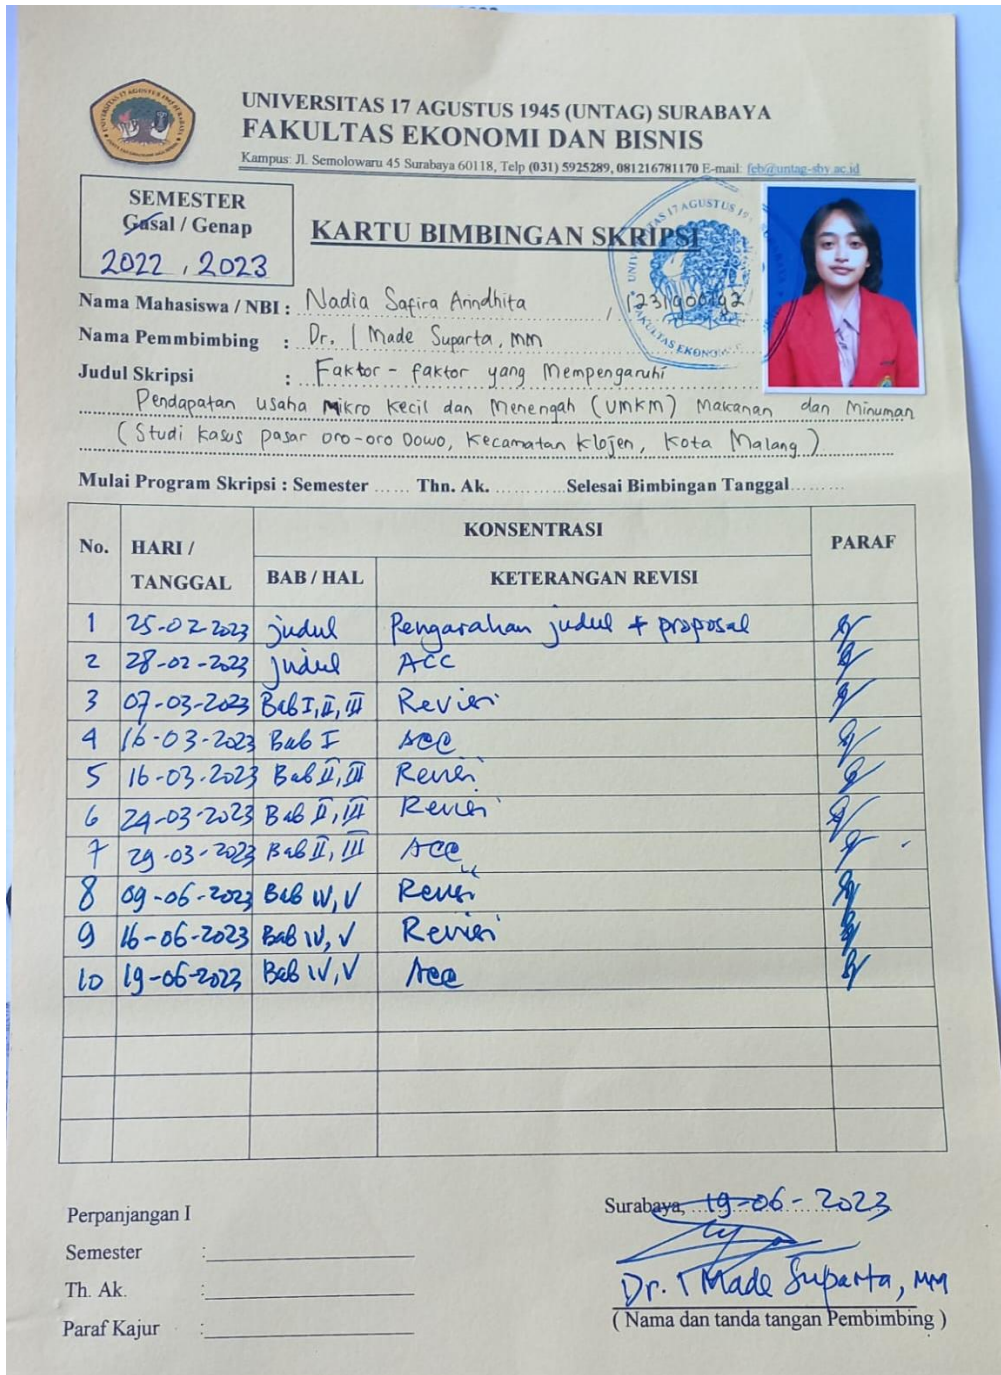 UNIVERSITAS 17 AGUSTUS 1945 (UNTAG) SURABAYA
FAKULTAS EKONOMI DAN BISNIS
Kampus: Jl. Semolowaru 45 Surabaya 60118, Telp (031) 5925289, 081216781170 E-mail: feb@untag-sby.ac.id
SEMESTER
Gasal / Genap
2022, 2023
KARTU BIMBINGAN SKRIPSI
Nama Mahasiswa / NBI : Nadia Safira Arindhita
Nama Pemmbimbing : Dr. I Made Suparta, MM
Judul Skripsi : Faktor - faktor yang Mempengaruhi
Pendapatan Usaha Mikro Kecil dan Menengah (UMKM) Makanan dan Minuman
(Studi Kasus Pasar Oro-oro Dowo, Kecamatan Klojen, Kota Malang)
Mulai Program Skripsi : Semester ...... Thn. Ak. ............ Selesai Bimbingan Tanggal .........
No. HARI / TANGGAL KONSENTRASI PARAF
BAB / HAL KETERANGAN REVISI
1 25-02-2023 judul Pengarahan judul + proposal
2 28-02-2023 judul ACC
3 07-03-2023 Bab I, II, III Revisi
4 16-03-2023 Bab I ACC
5 16-03-2023 Bab II, III Revisi
6 24-03-2023 Bab II, III Revisi
7 29-03-2023 Bab II, III ACC
8 09-06-2023 Bab IV, V Revisi
9 16-06-2023 Bab IV, V Revisi
10 19-06-2023 Bab IV, V Acc
Perpanjangan I
Semester :
Th. Ak. :
Paraf Kajur :
Surabaya, 19-06-2023
Dr. I Made Suparta, MM
( Nama dan tanda tangan Pembimbing )